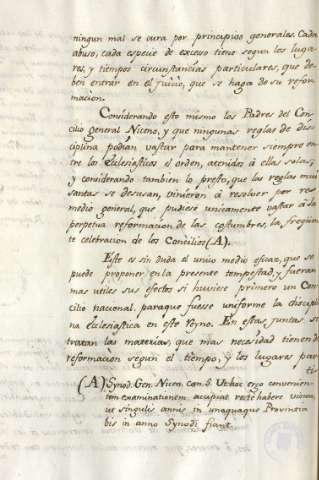 ningun mal se cura por principios generales. Cada
abuso, cada especie de exceso tiene segun los luga-
res, y tiempos circunstancias particulares, que de-
ben entrar en el juicio, que se haga de su refor-
macion.
Considerando esto mismo los Padres del Con-
cilio general Niceno, y que ningunas reglas de dis-
ciplina podian vastar para mantener siempre en-
tre los Eclesiasticos el orden, atenidos à ellas solas;
y considerando tambien lo presto, que las reglas mas
santas se desusan, vinieron à resolver por re-
medio general, que pudiese unicamente vastar à la
perpetua reformacion de las costumbres, la freqüen-
te celebracion de los Concilios (A).
Este es sin duda el unico medio eficaz, que se
puede proponer en la presente tempestad, y fueran
mas utiles sus efectos si huviese primero un Con-
cilio nacional, paraque fuesse uniforme la discipli-
na Eclesiastica en este Reyno. En estas juntas se
tratan las materias, que mas necesidad tienen de
reformacion segun el tiempo, y los lugares par-
ti
(A) Synod. Gen. Nicen. can. 5. Ut hæc ergo convenien-
tem examinationem accipiat recte habere
ut singulis annis in unaquaque Provincia
bis in anno Synodi fiant.